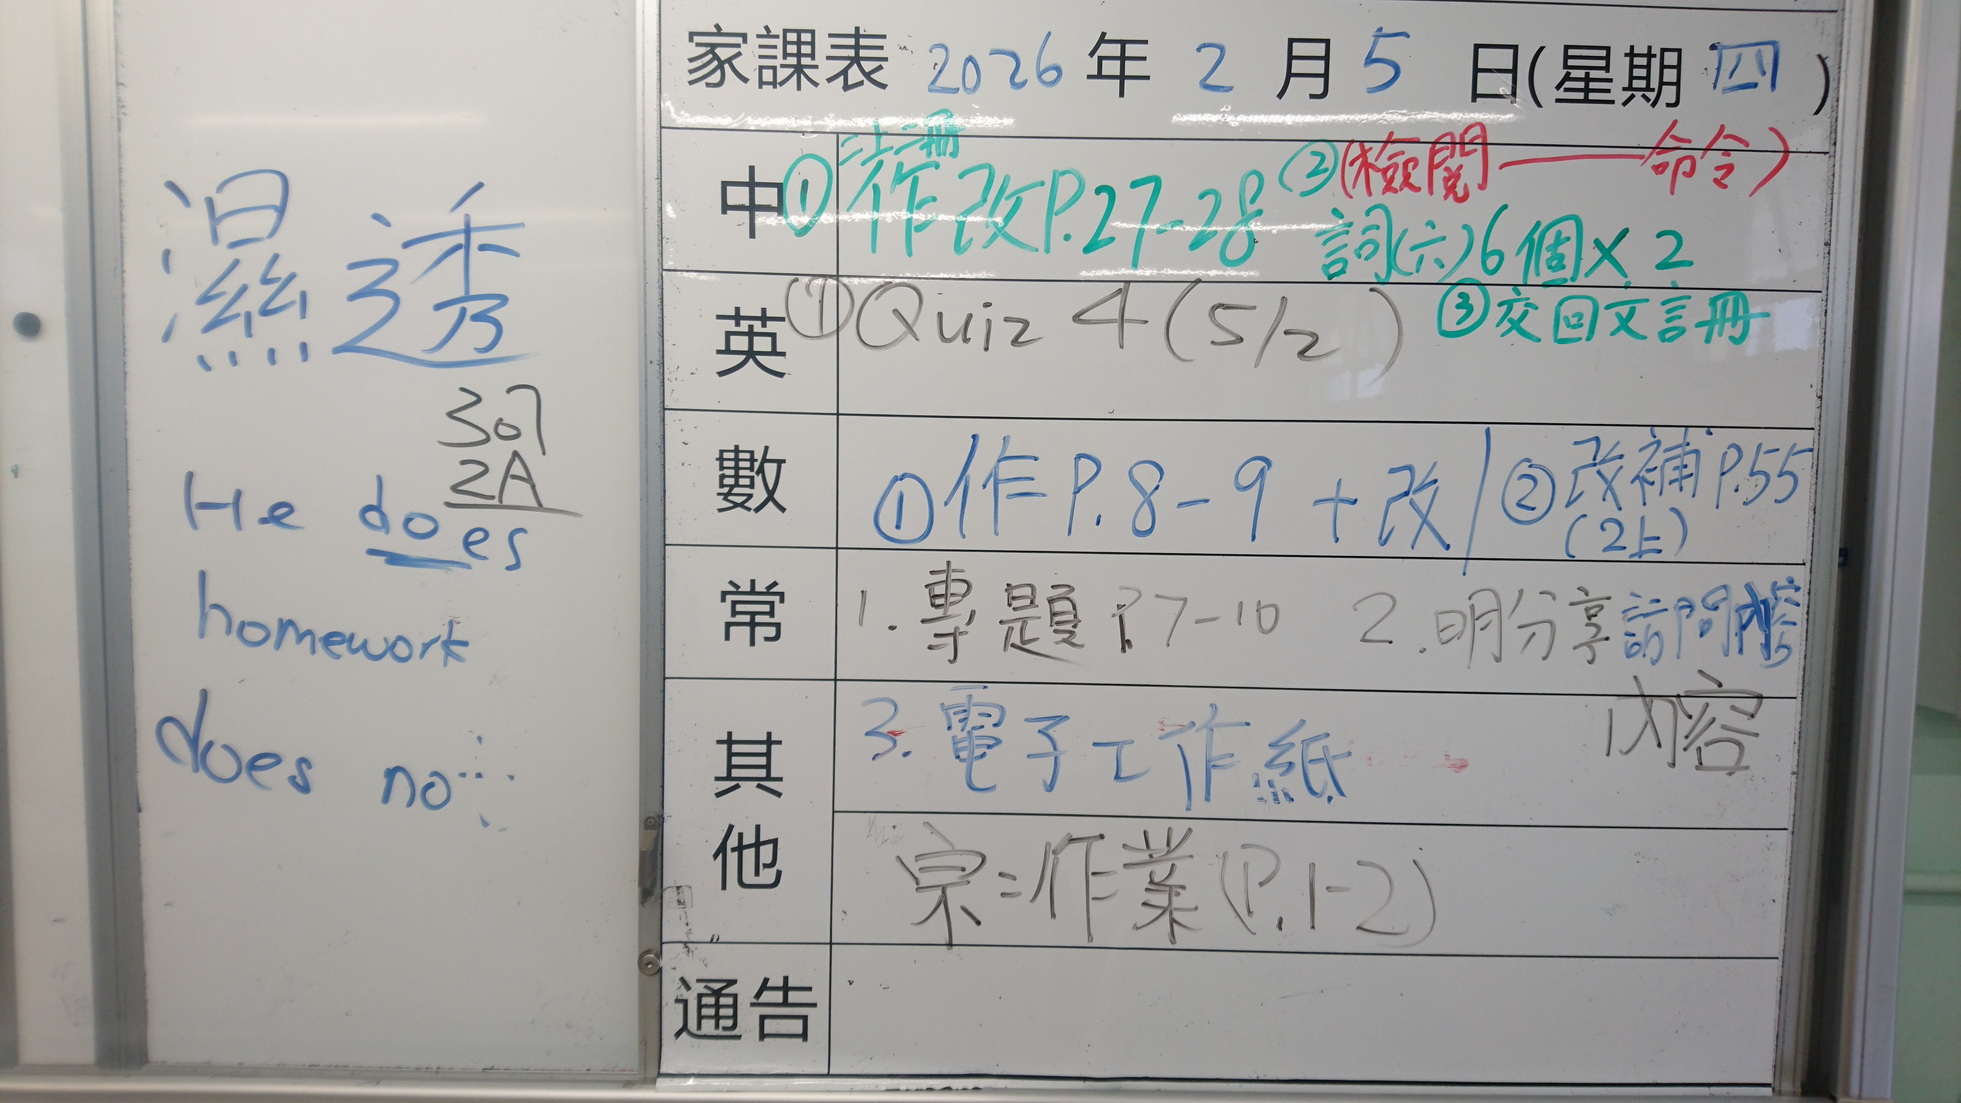 濕透
307
2A
He does
homework
does no
家課表 2026 年 2 月 5 日(星期 四)
中 ① 作改P.27-28 ②(檢閱——命令)
二上二冊
詞(六)6個×2
③交回文言冊
英 ①Quiz 4 (5/2)
數 ①作P.8-9+改 ②改補P.55
(2上)
常 1.專題P.7-10 2.明分享訪問內容
內容
其他 3.電子工作紙
宗:作業(P.1-2)
通告